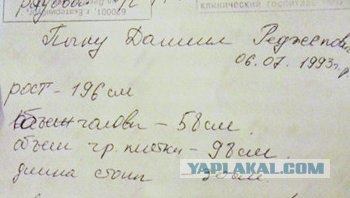 г.Екатеринб
клинический госпиталь
Пычу Данил Реджепови
06.07.1993г.р
рост - 196 см
объем головы - 58 см.
объем гр. клетки - 98 см.
длина стопы - 30 см.
YAPLAKAL.COM